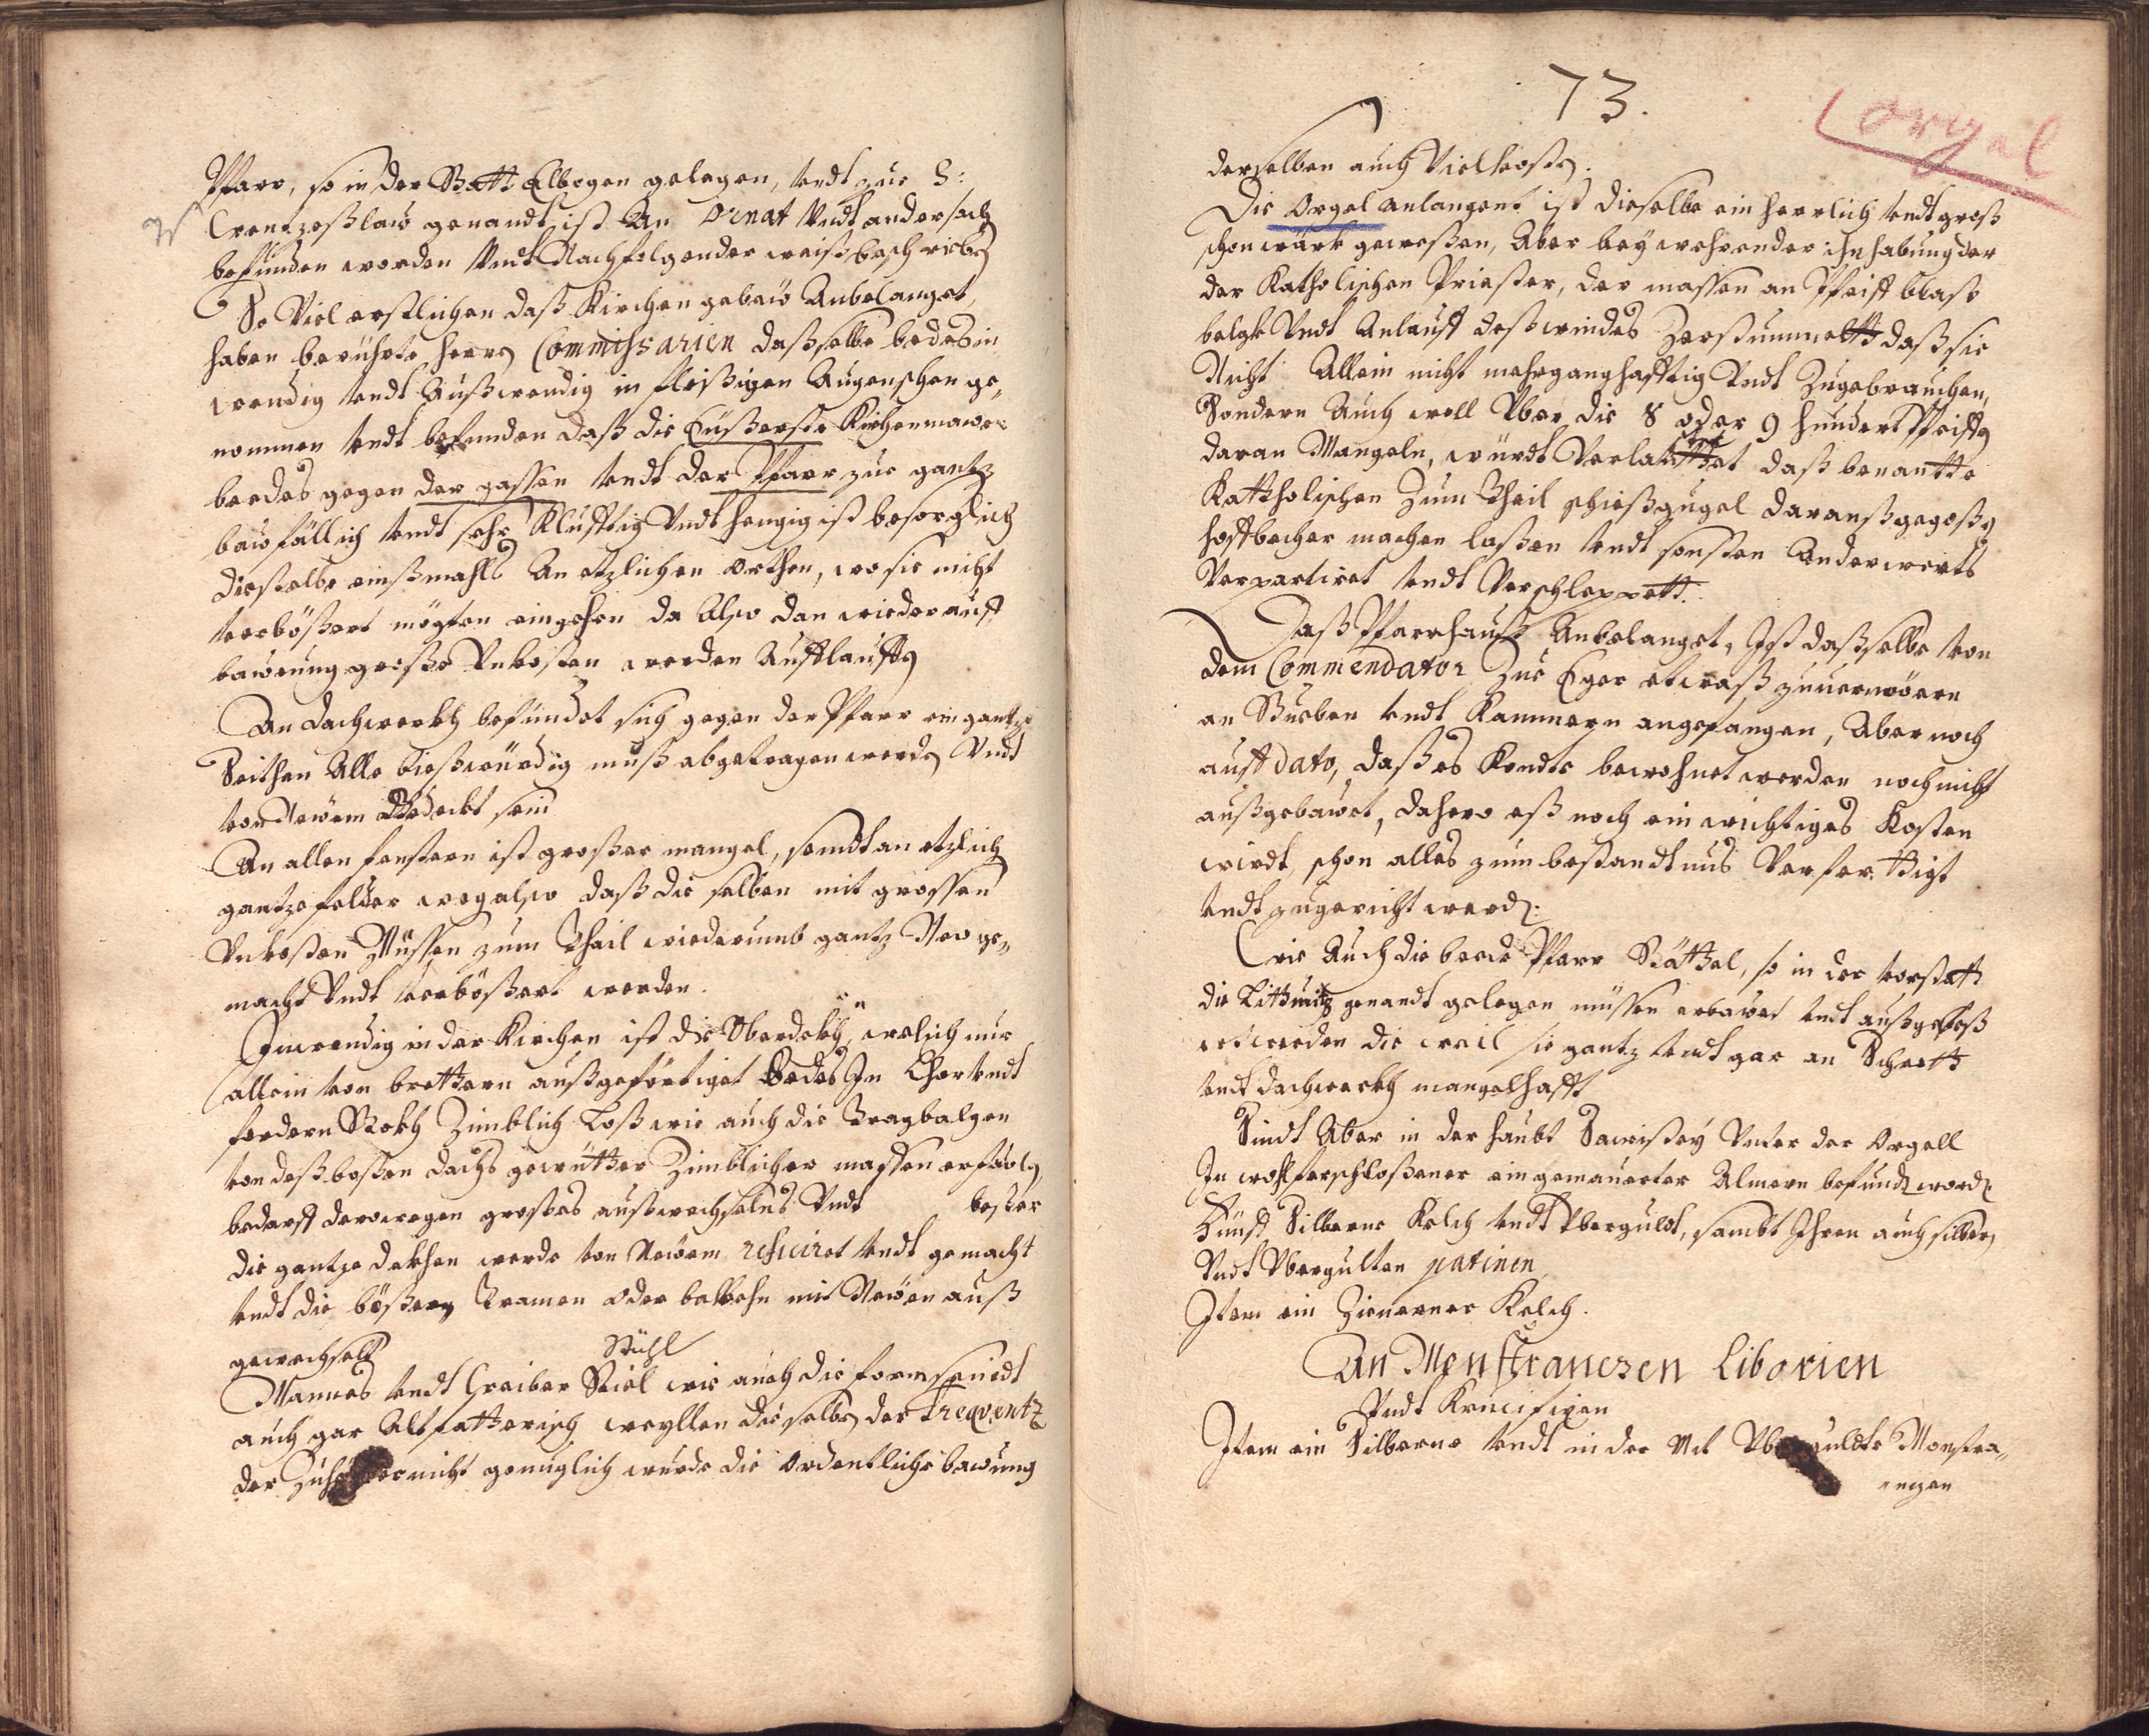 Pfarr, so in der Statt Elbogen gelegen, vndt zue S:
Wentzeßlaw genandt ist An Ornat Vndt andersach
befunden worden Vndt Nachfolgender weiß beschrieb
So Viel erstlichen daß Kirchen gebaw Anbelanget,
haben berührte herrn Commissarien daßselbe bedes in
wendig vndt Außwendig in fleißigen Augenschen ge„
nommen vndt befunden daß die Eüßerste Kirchenmawer
beedes gegen der gassen vndt der Pfarr zue gantz
bawfällich vndt sehr Klufftig Vndt hengig ist besorglich
dießelbe einßmahls An etzlichen Orthen, wo sie nicht
verbößert mögten eingehen da Also dan wieder auff
bawung große Vnkosten werden Aufflauffen
An dachwerkh befindet sich gegen der Pfarr ein gantze
Seithen Alle bießwürdig muß abgetragen werden Vndt
von Newem Bedeckt sein
An allen fenstern ist großer mangel, seindt an etzlich
gantze felder weg also daß die selben mit grossen
Vnkosten Müssen zum Theil wiederumb gantz New ge„
macht Vndt verbößert werden.
Inwendig in der Kirchen ist die Oberdekh, welich nur
allein von brettern außgefertiget Bedes In Chor vndt
fordern Stokh Zimblich Loß wie auch die Tragbalgen
von deß bösten dachs gewitter Zimblicher massen erfaulen
bedarff derowegen großes außwechselns Vndt besser
die gantze dekhen werde von Newem reficiret vndt gemacht
vndt die bößern Tramen oder balkehn mit Newen auß
gewechselt
Stühl
Mannes vndt Weiber Stiel wie auch die formb seindt
auch gar Altfatterisch weyllen dieselben der Freqventz
der Zuhörer nicht genuglich wurde die Ordentliche bawung
73.
Orgel
derselben auch Viel kosten.
Die Orgel anlangent ist dieselbe ein herrlich vndt groß
schon wark geweßen, Aber bey wehrender Inhabung der
der Katholischen Priester, der massen an Pfeiff blaß
belgk Vndt Anlauff deß windes Zerstummelt daß sie
Nicht Allein nicht mehr ganghafftig Vndt Zugebrauchen,
Sondern Auch woll Vber die 8 oder 9 hundert Pfeiffen
daran Mangeln, würdt Verlauttet daß benantte
Kattholischen Zum Theil schießgugel darauß gegoßen
hoffbecher machen laßen vndt sonsten Anderwerts
Verpartiret vndt Verschleppett.
Daß Pfarrhauß Anbelanget, Ist daßselbe von
dem Commendator Zue Eger etwaß zuernewern
an Stueben vndt Kammern angefangen, Aber noch
auff dato, daß es Kondte bewohnet werden noch nicht
außgebawet, dahero eß noch ein wichtiges Kosten
wirdt, schon alles zum bestandtnus Verferttigt
vndt zugericht werd:
Wie Auch die beede Pfarr Stättel, so in der vorstatt
die Littmitz genandt gelegen müssen erbawet vndt außgebeß
ert werden die weil sie gantz vndt gar an Schrott
vndt dachwerkh mangelhafft
Sindt Aber in der haubt Sacristey Vnter der Orgell
In wohlferschloßener eingemauerter Almern befund word
Fünff Silberne Kelch vndt Vberguldt, sambt Ihren auch silbern
Vndt Vbergulten patinen
Item ein Zienerner Kelch.
An Monstranczen Liborien
Vndt Krucifixen
Item ein Silberne vndt in der Mit Vberguldte Monstra„
nczen